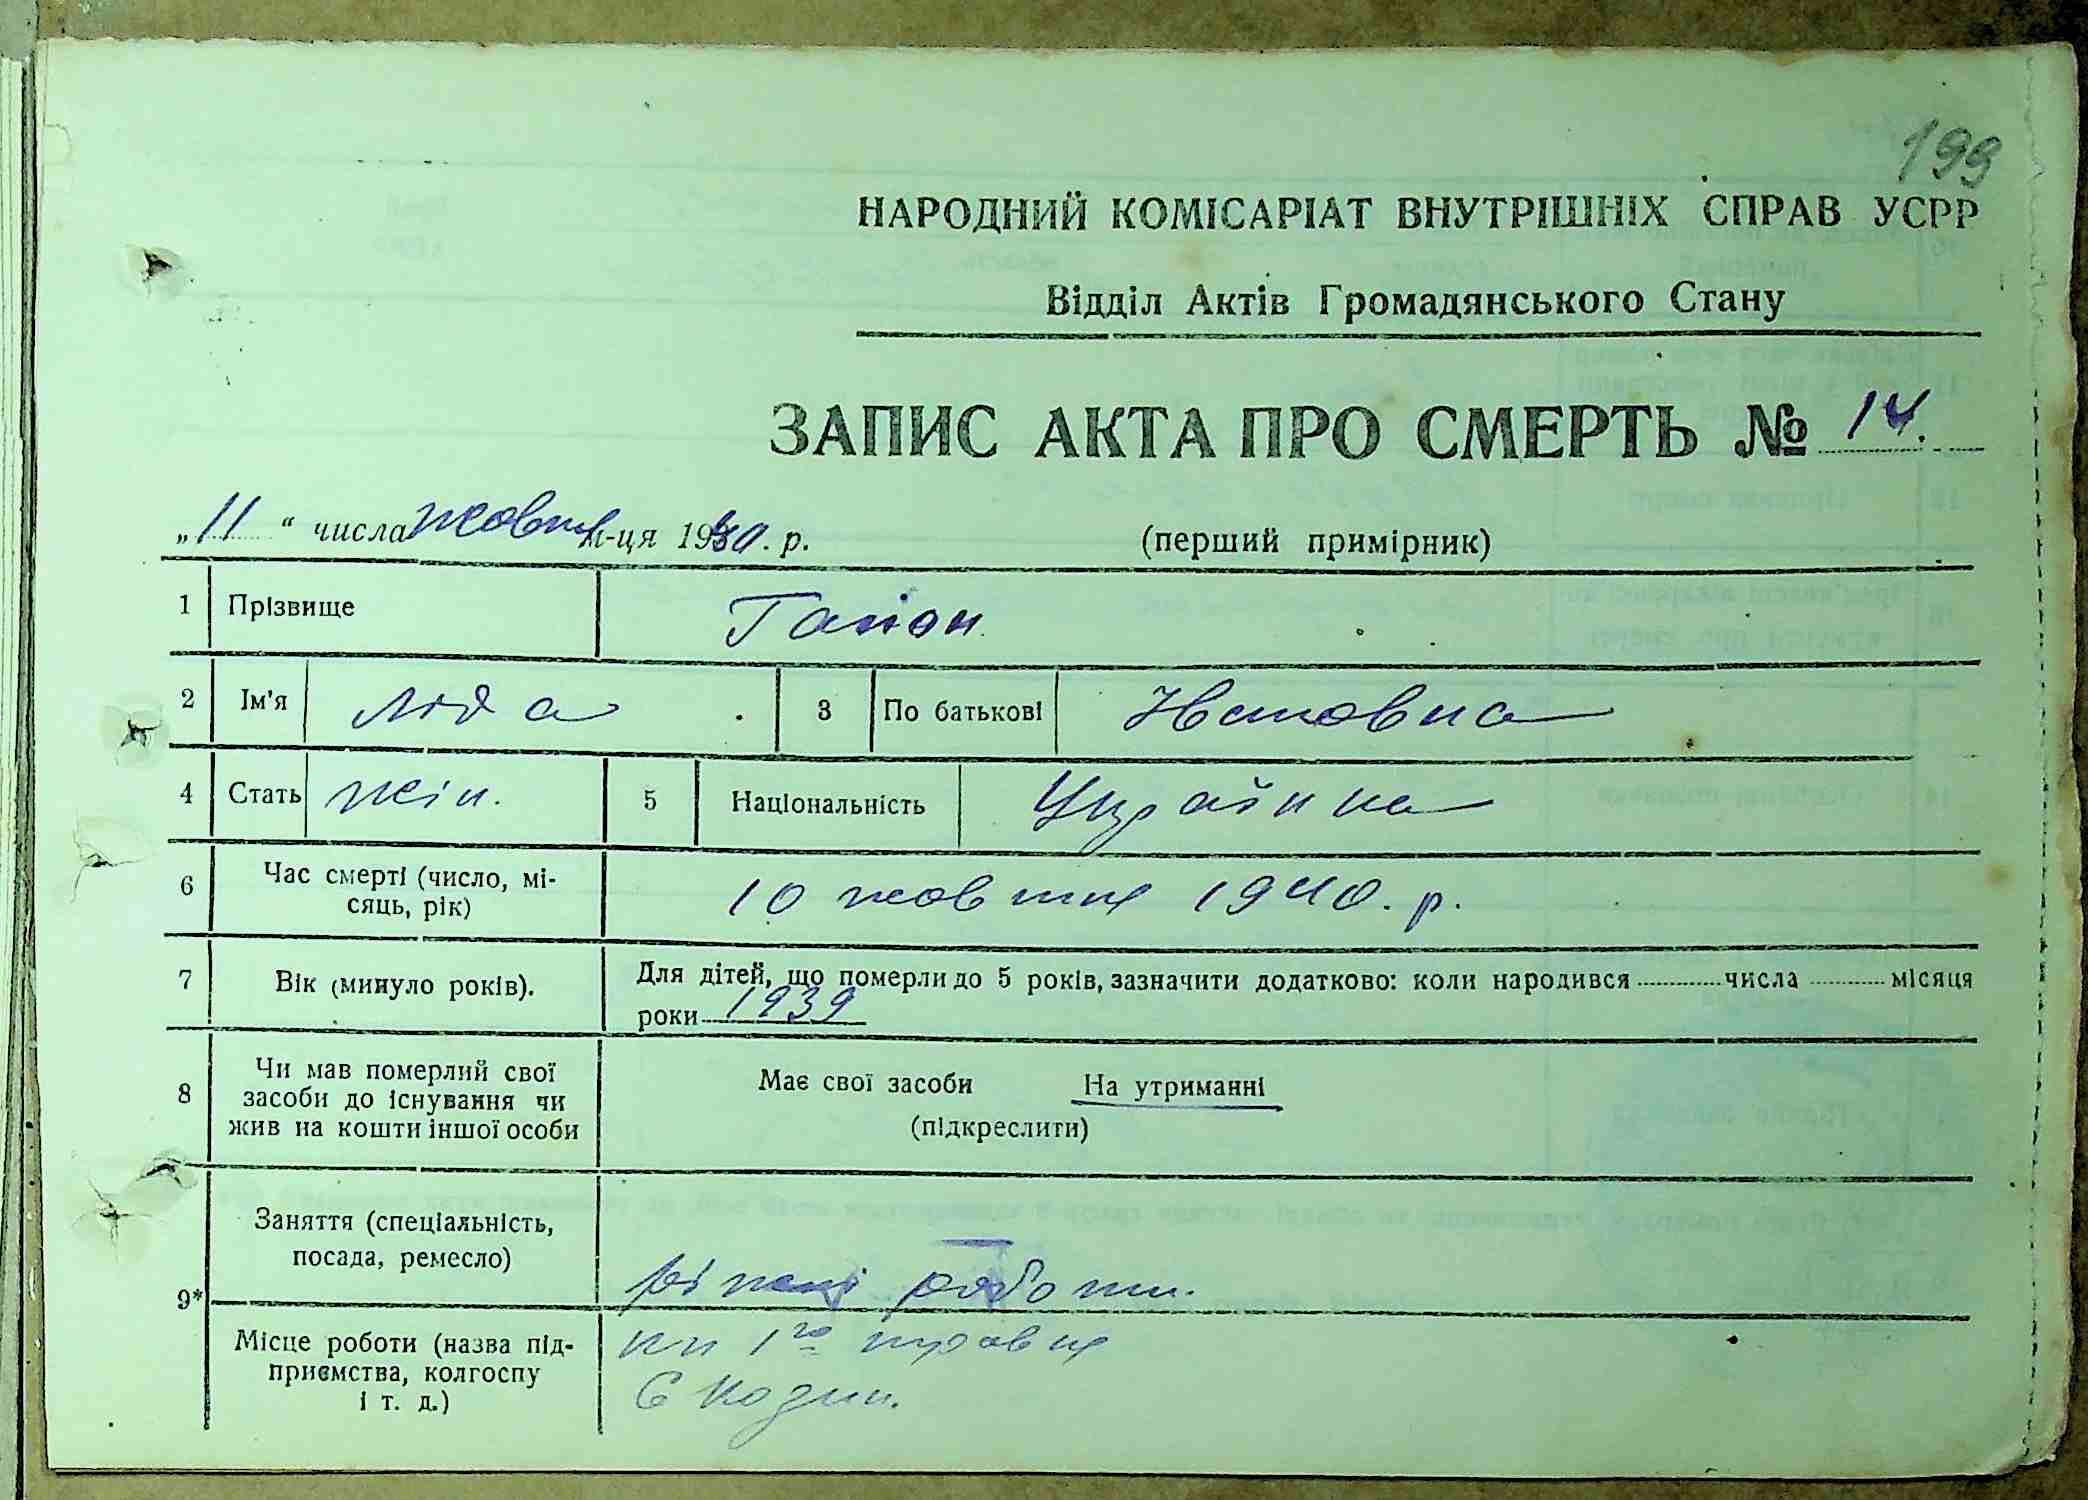 199
НАРОДНИЙ КОМІСАРІАТ ВНУТРІШНІХ СПРАВ УСРР
Відділ Актів Громадянського Стану
ЗАПИС АКТА ПРО СМЕРТЬ № 14.
„11“ числа жовтня м-ця 1940. р. (перший примірник)
1 Прізвище Гапон
2 Ім'я Ліда 3 По батькові Ивановна
4 Стать жін. 5 Національність Українка
6 Час смерті (число, мі-
сяць, рік) 10 жовтня 1940. р.
7 Вік (минуло років). Для дітей, що померли до 5 років, зазначити додатково: коли народився числа місяця
роки 1939
8 Чи мав померлий свої
засоби до існування чи
жив на кошти іншої особи
Має свої засоби На утриманні
(підкреслити)
9* Заняття (спеціальність,
посада, ремесло) різні роботи.
Місце роботи (назва під-
приємства, колгоспу
і т. д.)
1го травня